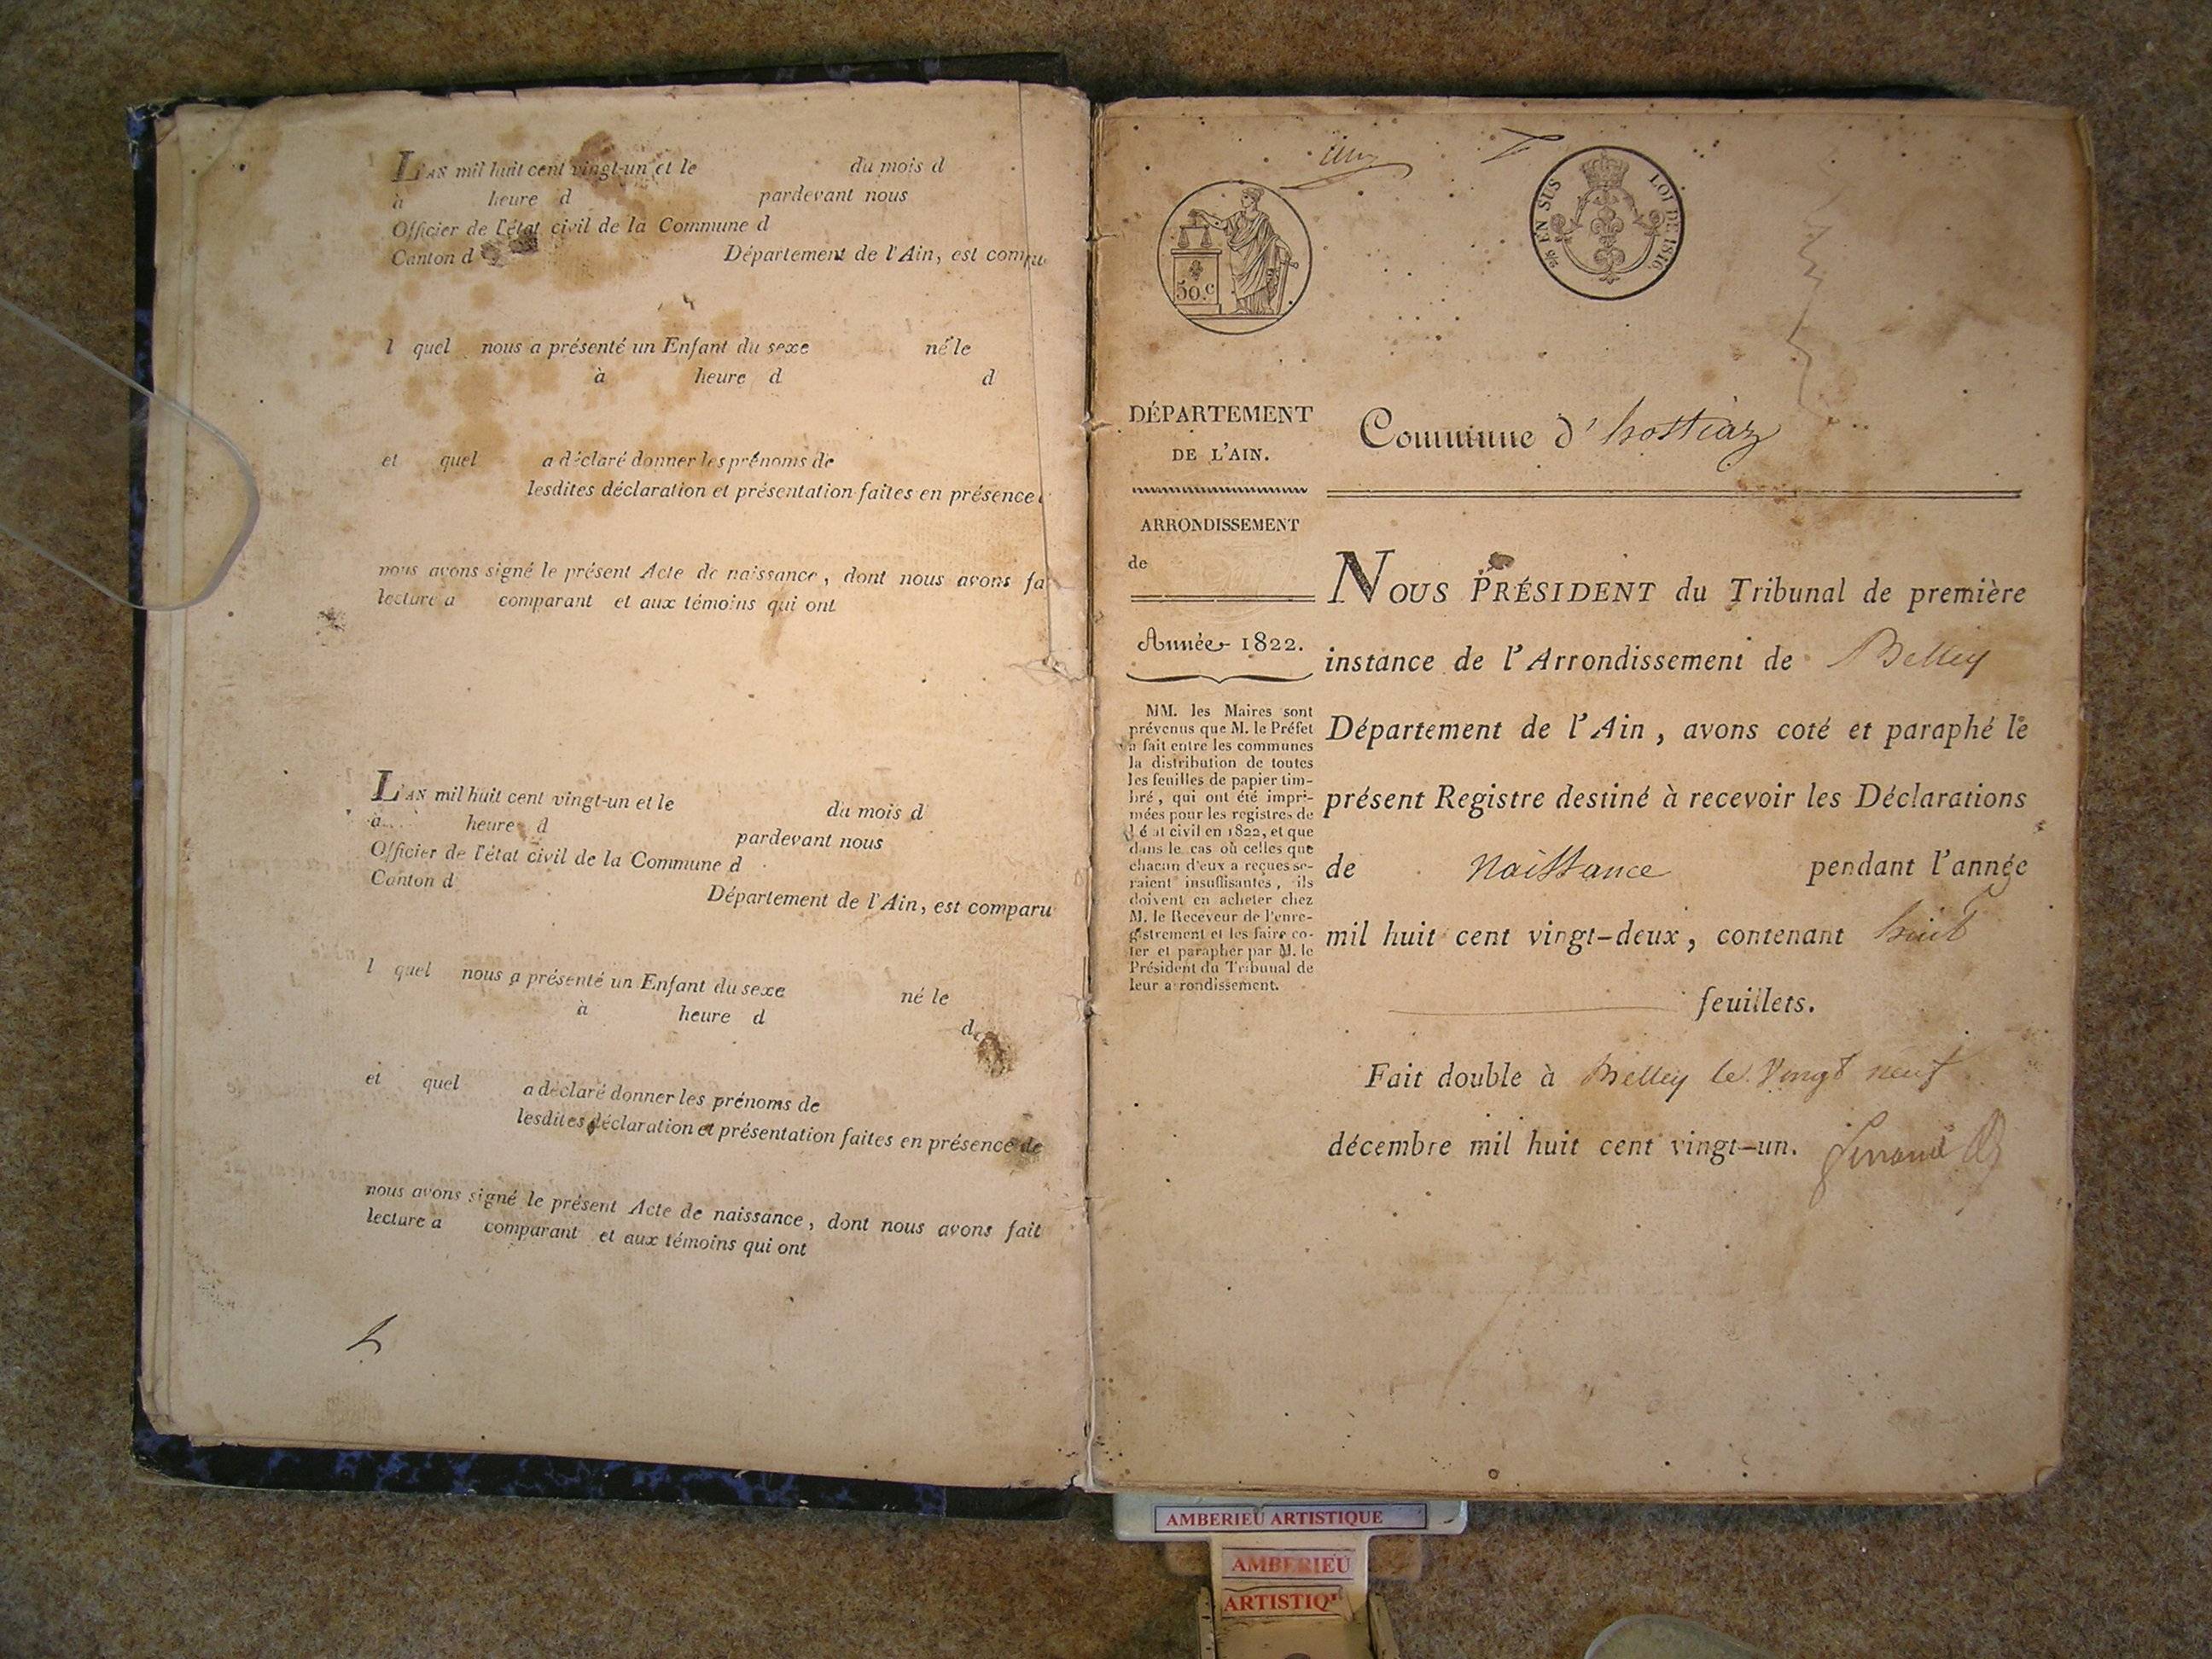 L'AN mil huit cent vingt-un et le du mois d
à heure d pardevant nous
Officier de l'état civil de la Commune d
Canton d Département de l'Ain, est compa
l quel nous a présenté un Enfant du sexe né le
à heure d d
et quel a déclaré donner les prénoms de
lesdites déclaration et présentation faites en présence
nous avons signé le présent Acte de naissance, dont nous avons fa
lecture a comparant et aux témoins qui ont
L'AN mil huit cent vingt-un et le du mois d
à heure d pardevant nous
Officier de l'état civil de la Commune d
Canton d Département de l'Ain, est comparu
l quel nous a présenté un Enfant du sexe né le
à heure d d
et quel a déclaré donner les prénoms de
lesdites déclaration et présentation faites en présence de
nous avons signé le présent Acte de naissance, dont nous avons fait
lecture a comparant et aux témoins qui ont
50.c
EN SUS LOI DE 1816.
DÉPARTEMENT
DE L'AIN.
ARRONDISSEMENT
de
Année 1822.
MM. les Maires sont
prévenus que M. le Préfet
a fait entre les communes
la distribution de toutes
les feuilles de papier tim-
bré, qui ont été impri-
mées pour les registres de
l'état civil en 1822, et que
dans le cas où celles que
chacun d'eux a reçues se-
raient insuffisantes, ils
doivent en acheter chez
M. le Receveur de l'enre-
gistrement et les faire co-
ter et parapher par M. le
Président du Tribunal de
leur arrondissement.
Commune d'hostiaz
NOUS PRÉSIDENT du Tribunal de première
instance de l'Arrondissement de Belley
Département de l'Ain, avons coté et paraphé le
présent Registre destiné à recevoir les Déclarations
de Naissance pendant l'année
mil huit cent vingt-deux, contenant huit
feuillets.
Fait double à Belley le Vingt neuf
décembre mil huit cent vingt-un.
AMBERIEU ARTISTIQUE
AMBERIEU
ARTISTIQ